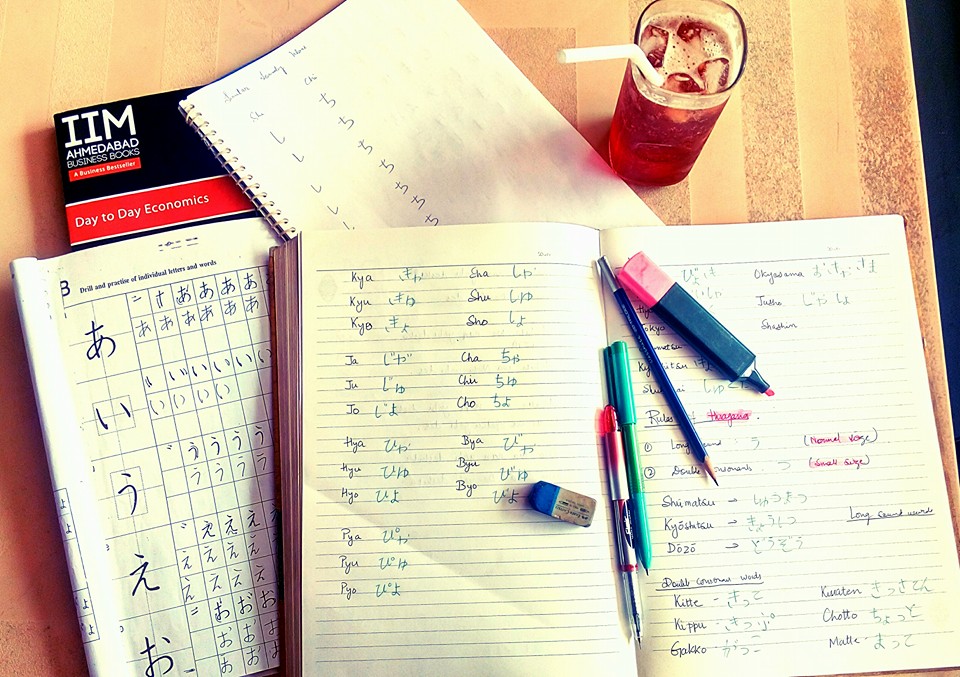 IIM
AHMEDABAD
BUSINESS BOOKS
A Business Bestseller
Day to Day Economics
Sha Chi
し ち
し ち
ち
し ち
し ち
3 Drill and practise of individual letters and words
あ あ あ あ あ
あ あ あ あ あ
い い い い い い
い い い い い
う う う う う
う う う う
え え え え
え え え え
え え え え
お お お お
お お お
お お お
Kya きゃ Sha しゃ
Kyu きゅ Shu しゅ
Kyo きょ Sho しょ
Ja じゃ Cha ちゃ
Ju じゅ Chu ちゅ
Jo じょ Cho ちょ
Hya ひゃ Bya びゃ
Hyu ひゅ Byu びゅ
Hyo ひょ Byo びょ
Pya ぴゃ
Pyu ぴゅ
Pyo ぴょ
Okyasama おきゃさま
Jusho じゅしょ
Shashin
Rules of Hiragana.
① Long sound う (Normal size)
② Double consonants っ (Small size)
Long sound words
Shūmatsu → しゅうまつ
Kyōshitsu → きょうしつ
Dōzō → どうぞう
Double consonant words
Kitte - きって Kissaten きっさてん
Kippu - きっぷ Chotto ちょっと
Gakko - がっこ Matte - まって